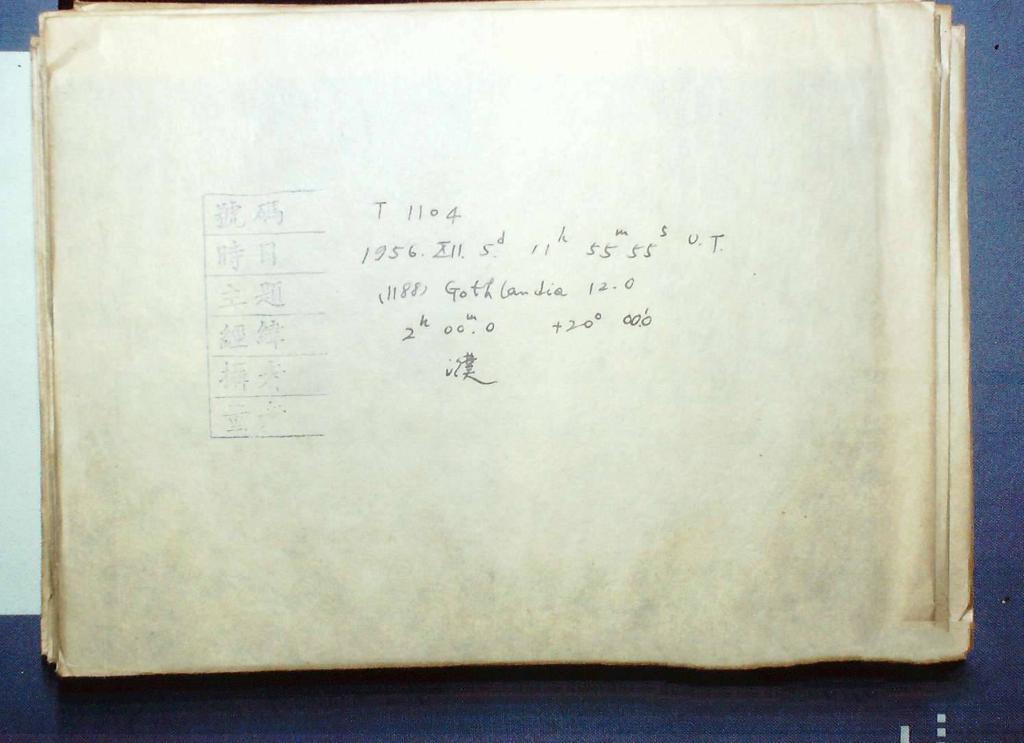 號碼 T 1104
時日 1956. XII. 5.d 11h 55m 55s U.T.
主題 (1188) Gothlandia 12.0
經緯 2h 00m.0 +20° 00.'0